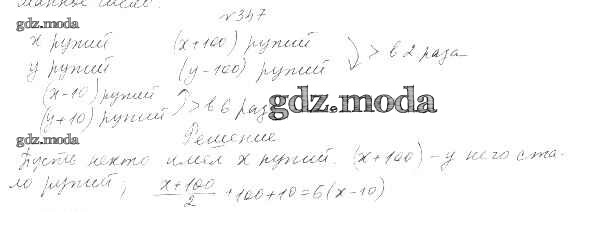 манные числа.
№347
gdz.moda
x рупий (x+100) рупий
> в 2 раза
y рупий (y-100) рупий
(x-10) рупий
> в 6 раз
(y+10) рупий
gdz.moda
gdz.moda
Решение
Пусть некто имел x рупий. (x+100) - у него ста-
ло рупий, (x+100)/2 +100+10=6(x-10)